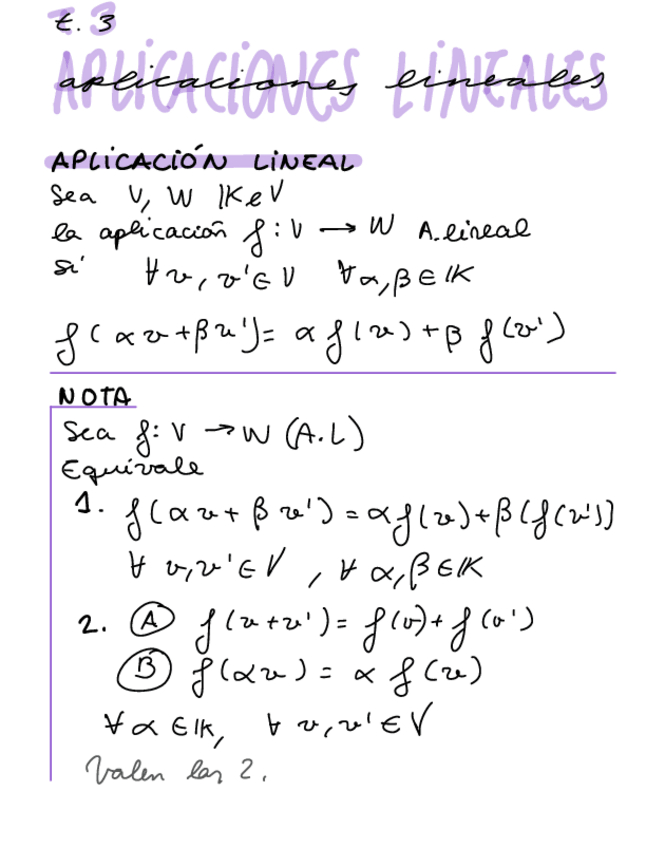 t. 3
APLICACIONES LINEALES
aplicaciones lineales
APLICACIÓN LINEAL
Sea V, W IKeV
la aplicación f: V → W A. lineal
si ∀ v, v' ∈ V ∀ α, β ∈ IK
f(αv + βv') = α f(v) + β f(v')
NOTA
Sea f: V → W (A.L)
Equivale
1. f(αv + βv') = αf(v) + β(f(v'))
∀ v, v' ∈ V, ∀ α, β ∈ IK
2. Ⓐ f(v + v') = f(v) + f(v')
Ⓑ f(αv) = α f(v)
∀ α ∈ IK, ∀ v, v' ∈ V
Valen las 2.